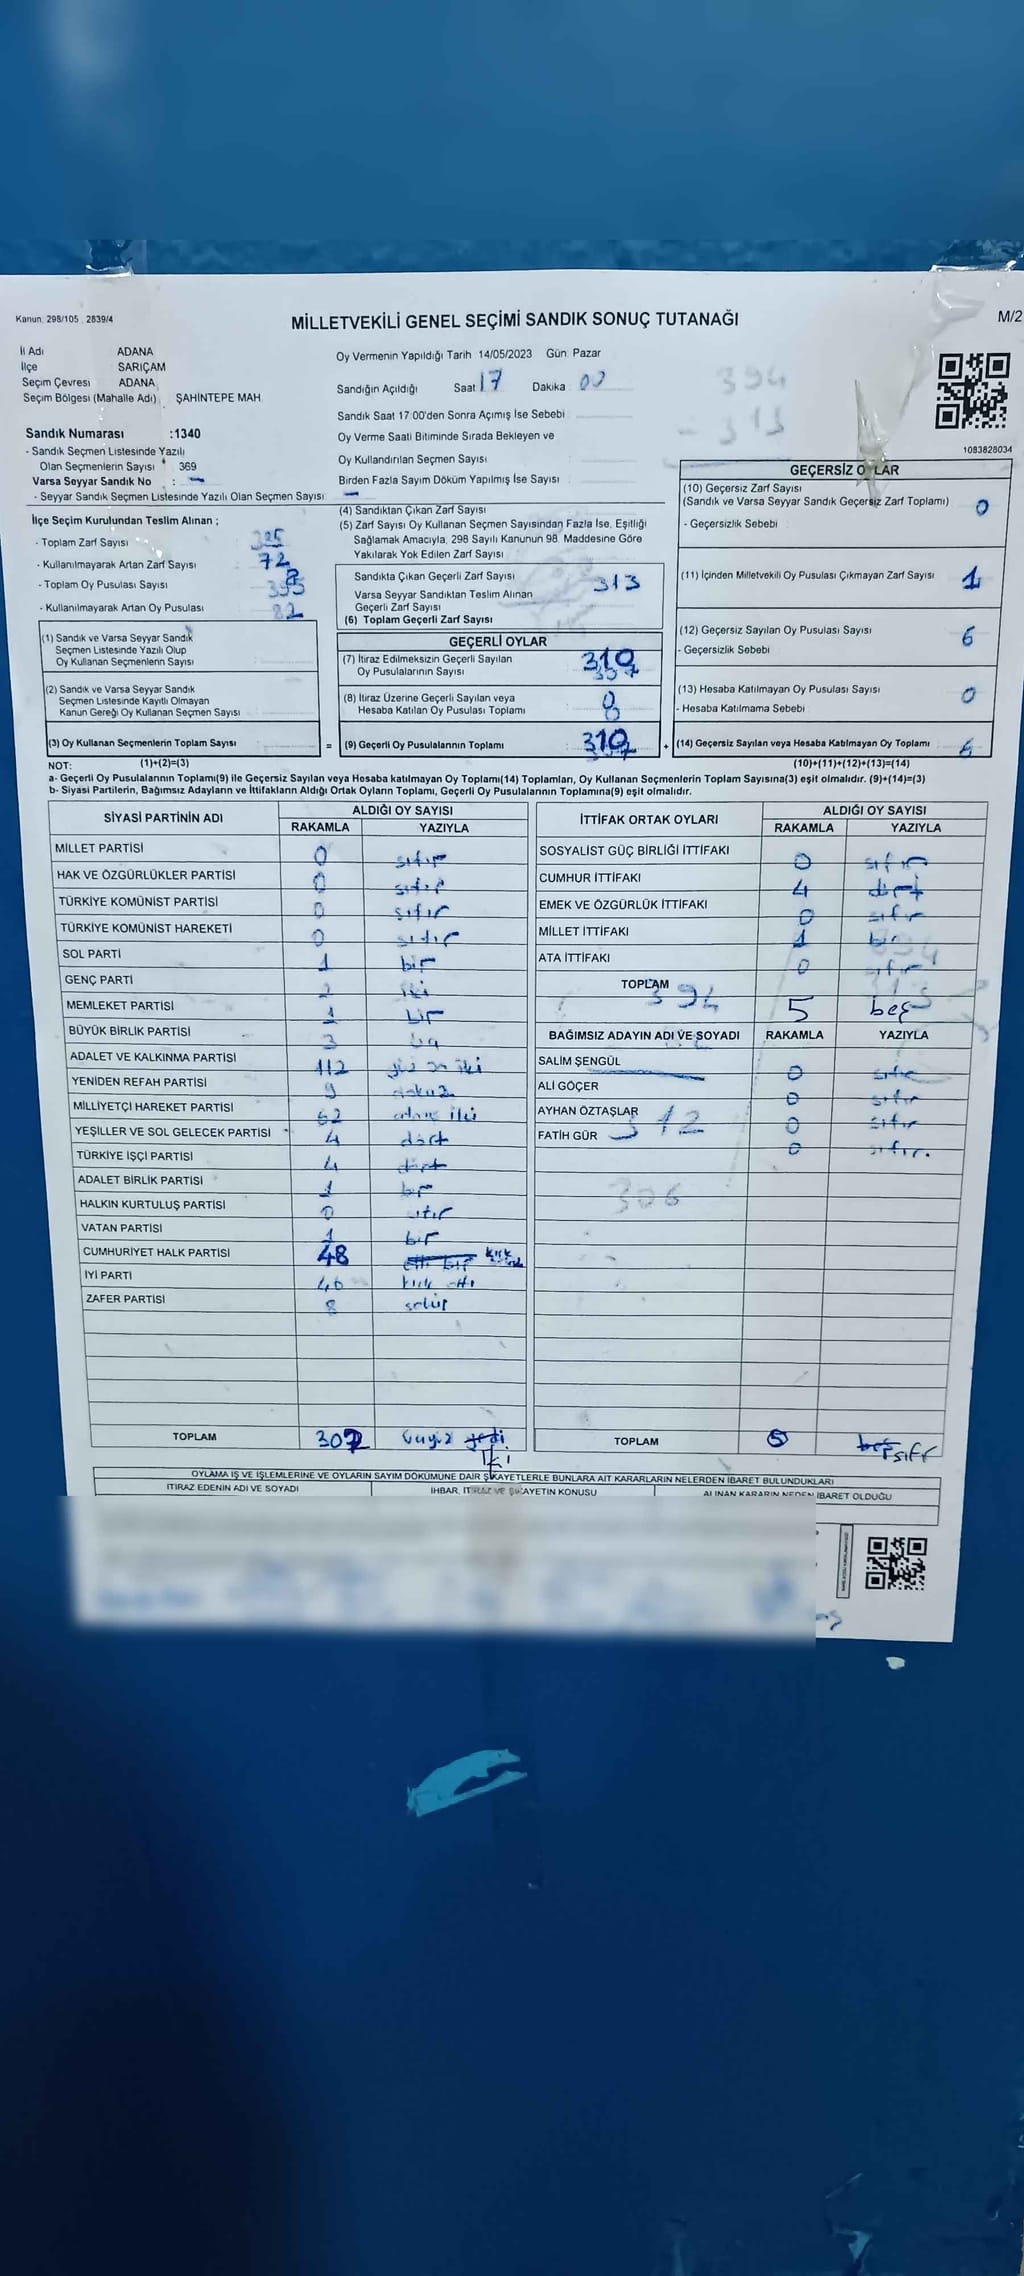 Kanun: 298/105 , 2839/4
MİLLETVEKİLİ GENEL SEÇİMİ SANDIK SONUÇ TUTANAĞI
M/2
İl Adı ADANA
İlçe SARIÇAM
Seçim Çevresi ADANA
Seçim Bölgesi (Mahalle Adı) ŞAHİNTEPE MAH.
Oy Vermenin Yapıldığı Tarih 14/05/2023 Gün: Pazar
Sandığın Açıldığı Saat 17 Dakika : 00
394
- 313
Sandık Saat 17:00'den Sonra Açımış İse Sebebi :
Oy Verme Saati Bitiminde Sırada Bekleyen ve
Oy Kullandırılan Seçmen Sayısı :
Birden Fazla Sayım Döküm Yapılmış İse Sayısı :
Sandık Numarası :1340
- Sandık Seçmen Listesinde Yazılı
Olan Seçmenlerin Sayısı : 369
Varsa Seyyar Sandık No : -
- Seyyar Sandık Seçmen Listesinde Yazılı Olan Seçmen Sayısı : -
1083828034
İlçe Seçim Kurulundan Teslim Alınan ;
- Toplam Zarf Sayısı
- Kullanılmayarak Artan Zarf Sayısı : 72
- Toplam Oy Pusulası Sayısı
- Kullanılmayarak Artan Oy Pusulası : 82
(1) Sandık ve Varsa Seyyar Sandık
Seçmen Listesinde Yazılı Olup
Oy Kullanan Seçmenlerin Sayısı :
(2) Sandık ve Varsa Seyyar Sandık
Seçmen Listesinde Kayıtlı Olmayan
Kanun Gereği Oy Kullanan Seçmen Sayısı :
(3) Oy Kullanan Seçmenlerin Toplam Sayısı :
(4) Sandıktan Çıkan Zarf Sayısı :
(5) Zarf Sayısı Oy Kullanan Seçmen Sayısından Fazla İse, Eşitliği
Sağlamak Amacıyla, 298 Sayılı Kanunun 98. Maddesine Göre
Yakılarak Yok Edilen Zarf Sayısı :
Sandıkta Çıkan Geçerli Zarf Sayısı : 313
Varsa Seyyar Sandıktan Teslim Alınan
Geçerli Zarf Sayısı :
(6) Toplam Geçerli Zarf Sayısı :
GEÇERLİ OYLAR
(7) İtiraz Edilmeksizin Geçerli Sayılan
Oy Pusulalarının Sayısı : 310
(8) İtiraz Üzerine Geçerli Sayılan veya
Hesaba Katılan Oy Pusulası Toplamı : 0
= (9) Geçerli Oy Pusulalarının Toplamı : 310
GEÇERSİZ OYLAR
(10) Geçersiz Zarf Sayısı
(Sandık ve Varsa Seyyar Sandık Geçersiz Zarf Toplamı) : 0
- Geçersizlik Sebebi :
(11) İçinden Milletvekili Oy Pusulası Çıkmayan Zarf Sayısı : 1
(12) Geçersiz Sayılan Oy Pusulası Sayısı : 6
- Geçersizlik Sebebi :
(13) Hesaba Katılmayan Oy Pusulası Sayısı : 0
- Hesaba Katılmama Sebebi :
+ (14) Geçersiz Sayılan veya Hesaba Katılmayan Oy Toplamı : 6
NOT: (1)+(2)=(3) (10)+(11)+(12)+(13)=(14)
a- Geçerli Oy Pusulalarının Toplamı(9) ile Geçersiz Sayılan veya Hesaba katılmayan Oy Toplamı(14) Toplamları, Oy Kullanan Seçmenlerin Toplam Sayısına(3) eşit olmalıdır. (9)+(14)=(3)
b- Siyasi Partilerin, Bağımsız Adayların ve İttifakların Aldığı Ortak Oyların Toplamı, Geçerli Oy Pusulalarının Toplamına(9) eşit olmalıdır.
SİYASİ PARTİNİN ADI ALDIĞI OY SAYISI
RAKAMLA YAZIYLA
MİLLET PARTİSİ 0 sıfır
HAK VE ÖZGÜRLÜKLER PARTİSİ 0 sıfır
TÜRKİYE KOMÜNİST PARTİSİ 0 sıfır
TÜRKİYE KOMÜNİST HAREKETİ 0 sıfır
SOL PARTİ 1 bir
GENÇ PARTİ 2 iki
MEMLEKET PARTİSİ 1 bir
BÜYÜK BİRLİK PARTİSİ 3 üç
ADALET VE KALKINMA PARTİSİ 112 yüz on iki
YENİDEN REFAH PARTİSİ 9 dokuz
MİLLİYETÇİ HAREKET PARTİSİ 62 altmış iki
YEŞİLLER VE SOL GELECEK PARTİSİ 4 dört
TÜRKİYE İŞÇİ PARTİSİ 4 dört
ADALET BİRLİK PARTİSİ 1 bir
HALKIN KURTULUŞ PARTİSİ 0 sıfır
VATAN PARTİSİ 1 bir
CUMHURİYET HALK PARTİSİ 48 elli bir kırk sekiz
İYİ PARTİ 46 kırk altı
ZAFER PARTİSİ 8 sekiz
TOPLAM 302 üçyüz yedi iki
İTTİFAK ORTAK OYLARI ALDIĞI OY SAYISI
RAKAMLA YAZIYLA
SOSYALİST GÜÇ BİRLİĞİ İTTİFAKI 0 sıfır
CUMHUR İTTİFAKI 4 dört
EMEK VE ÖZGÜRLÜK İTTİFAKI 0 sıfır
MİLLET İTTİFAKI 1 bir
ATA İTTİFAKI 0 sıfır
TOPLAM 5 beş
394
BAĞIMSIZ ADAYIN ADI VE SOYADI RAKAMLA YAZIYLA
SALİM ŞENGÜL 0 sıfır
ALİ GÖÇER 0 sıfır
AYHAN ÖZTAŞLAR 0 sıfır
FATİH GÜR 0 sıfır.
312
306
TOPLAM 5 beş sıfır
OYLAMA İŞ VE İŞLEMLERİNE VE OYLARIN SAYIM DÖKÜMÜNE DAİR ŞİKAYETLERLE BUNLARA AİT KARARLARIN NELERDEN İBARET BULUNDUKLARI
İTİRAZ EDENİN ADI VE SOYADI İHBAR, İTİRAZ VE ŞİKAYETİN KONUSU ALINAN KARARIN NEDEN İBARET OLDUĞU